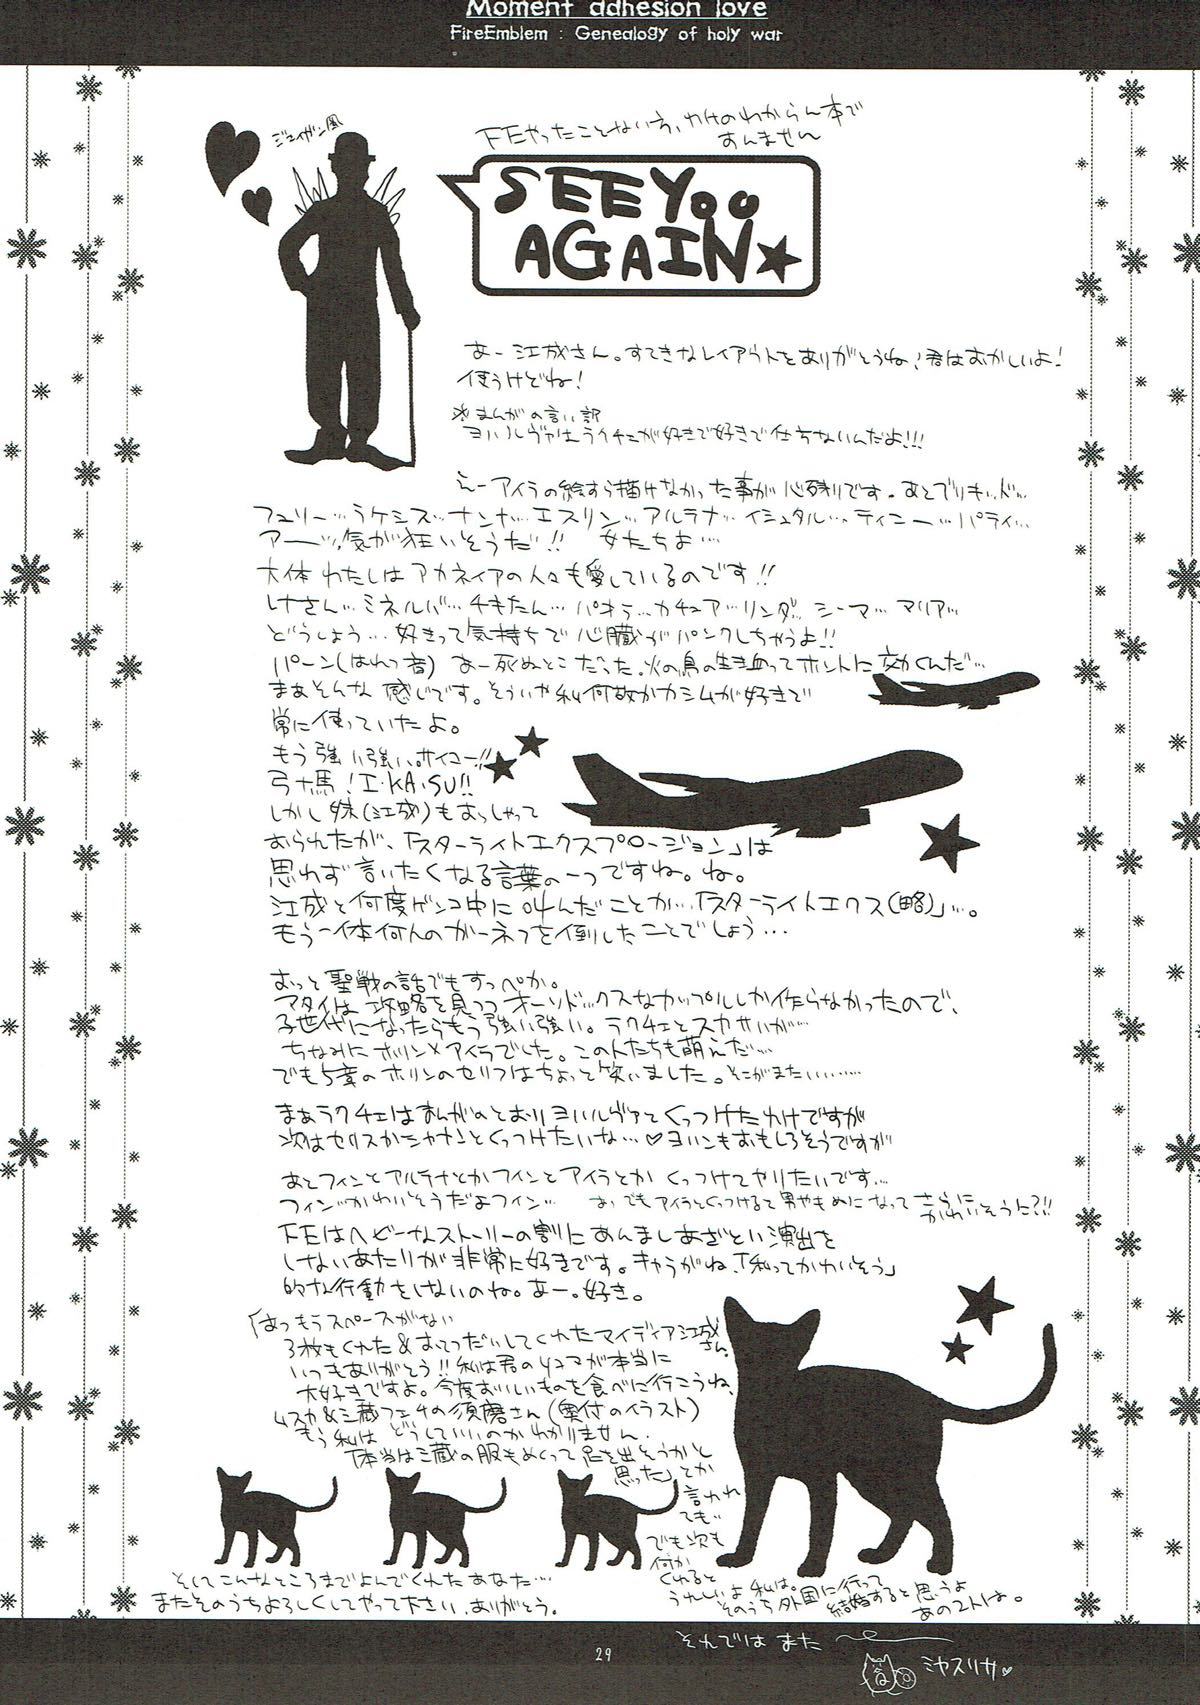 Moment adhesion love
FireEmblem : Genealogy of holy war
ジェイガン風
FEやったことない方、わけのわからん本で
あんません
SEE YOU
AGAIN★
あー江成さん。すてきなレイアウトをありがとうね!君はおかしいよ!
使うけどね!
*まんがの言い訳
ヨハルヴァはラクチェが好きで好きで仕方ないんだよ!!!
えーアイラの絵すら描けなかった事が心残りです。あとブリギッド…
フュリー…ラケシス…ナンナ…エスリン…アルテナ…イシュタル…ティニー…パティ…
アーッ、気が狂いそうだ!! 女たちよ…
大体わたしはアカネイアの人々も愛しているのです!!
レナさん…ミネルバ…チキたん…パオラ…カチュア…リンダ…シーマ…マリア…
どうしよう…好きって気持ちで心臓がパンクしちゃうよ!!
パーン(はれつ音) あー死ぬとこだった。火の鳥の生き血ってホントに効くんだ…
まあそんな感じです。そういや私何故かカシムが好きで
常に使っていたよ。
もう強い強い。サイコー!!
弓+馬!I・KA・SU!!
しかし妹(江成)もおっしゃって
おられたが、「スターライトエクスプロージョン」は
思わず言いたくなる言葉の一つですね。ね。
江成と何度ゲンコ中に叫んだことか…「スターライトエクス(略)」…。
もう一体何人のガーネフを倒したことでしょう…
おっと聖戦の話でもすっぺか。
アタイは攻略を見つつオーソドックスなカップルしか作らなかったので、
子世代になったらもう強い強い。ラクチェとスカサハが…
ちなみにホリン×アイラでした。この人たちも萌えだ…
でも5章のホリンのセリフはちょっと笑いました。そこがまたいい……
まあラクチェはまんがのとおりヨハルヴァとくっつけたわけですが
次はセリスかシャナンとくっつけたいな…♡ヨハンもおもしろそうですが
あとフィンとアルテナとかフィンとアイラとかくっつけてやりたいです…
フィン…かわいそうだよフィン… あっでもアイラとくっつけると男やもめになってさらに
かわいそうに?!!
FEはヘビーなストーリーの割にあんましあざとい演出を
しないあたりが非常に好きです。キャラがね、「私ってかわいそう」
的な行動をしないのね。あー。好き。
はっもうスペースがない
3枚もくれた&おてつだいしてくれたマイディア江成
さん。
いつもありがとう!!私は君の4コマが本当に
大好きですよ。今度おいしいものを食べに行こうね、
ムスカ&三蔵フェチの須磨さん(奥付のイラスト)
もう私はどうしていいのかわかりません.
「本当は三蔵の服もめくって足を出そうかと
思った」とか
言われ
ても…
でも次も
何か
くれると
うれしいよ私は。
そのうち外国に行って
結婚すると思うよ
あの2人は。
そしてこんなところまでよんでくれたあなた…
またそのうちよろしくしてやって下さい、ありがとう。
29
それではまた
ミヤスリサ♥